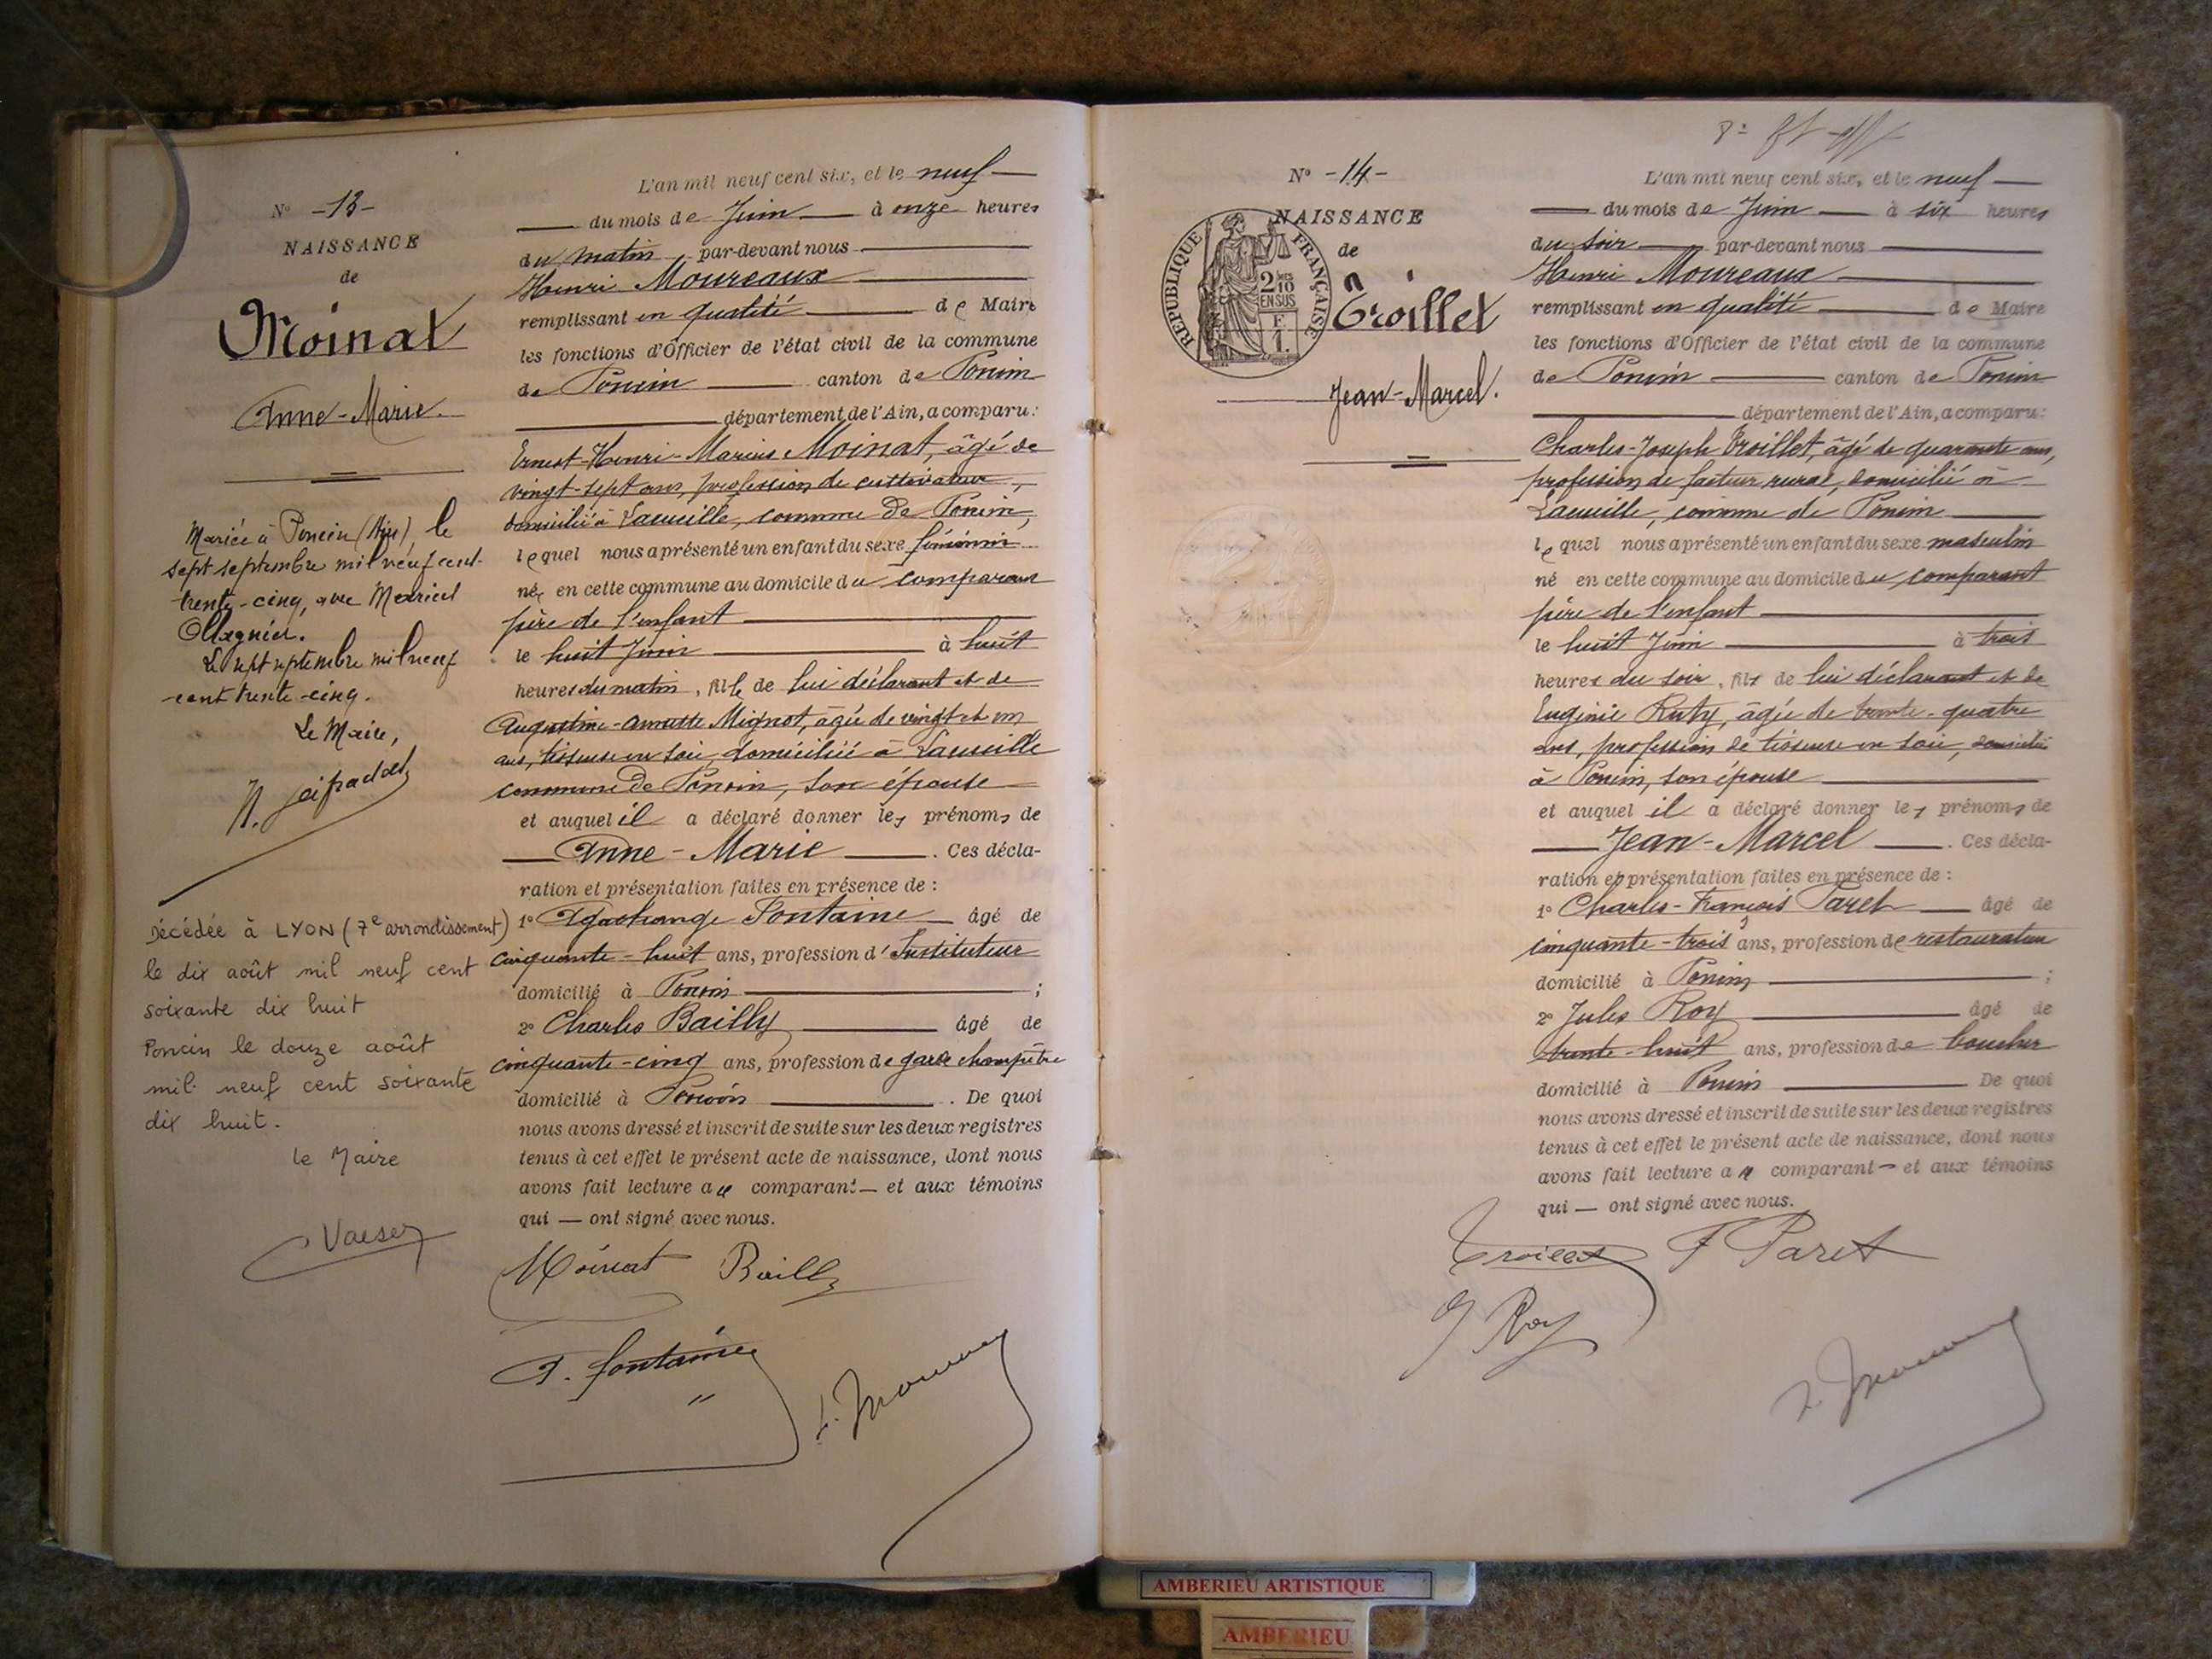 N° -13-
NAISSANCE
de
Moinat
Anne-Marie.
Mariée à Poncin (Ain), le
sept septembre mil neuf cent
trente-cinq, avec Marcel
Le sept septembre mil neuf
cent trente-cinq.
Le Maire,
Décédée à LYON (7e arrondissement)
le dix août mil neuf cent
soixante dix huit
Poncin le douze août
mil neuf cent soixante
dix huit.
le Maire
L'an mil neuf cent six, et le neuf
du mois de Juin à onze heures
du matin par-devant nous
Henri Moureaux
remplissant en qualité de Maire
les fonctions d'Officier de l'état civil de la commune
de Poncin canton de Poncin
département de l'Ain, a comparu:
Ernest-Henri-Marius Moinat, âgé de
vingt-sept ans, profession de cultivateur,
domicilié à Leuville, commune de Poncin,
lequel nous a présenté un enfant du sexe féminin
née en cette commune au domicile du comparant
père de l'enfant
le huit Juin à huit
heures du matin, fille de lui déclarant et de
Augustine-Annette Mignot, âgée de vingt et un
ans, tisseuse en soie, domiciliée à
commune de Poncin, son épouse
et auquel il a déclaré donner les prénoms de
Anne-Marie. Ces décla-
ration et présentation faites en présence de :
1° Fontaine âgé de
cinquante-huit ans, profession d'Instituteur
domicilié à Poncin ;
2° Charles Bailly âgé de
cinquante-cinq ans, profession de garde champêtre
domicilié à Poncin. De quoi
nous avons dressé et inscrit de suite sur les deux registres
tenus à cet effet le présent acte de naissance, dont nous
avons fait lecture au comparant — et aux témoins
qui — ont signé avec nous.
Moinat Bailly
T. fontaine
N° -14-
NAISSANCE
de
Troillet
Jean-Marcel.
REPUBLIQUE FRANÇAISE
2/10
EN SUS
F.
1.
L'an mil neuf cent six, et le neuf
du mois de Juin à six heures
du soir par-devant nous
Henri Moureaux
remplissant en qualité de Maire
les fonctions d'Officier de l'état civil de la commune
de Poncin canton de Poncin
département de l'Ain, a comparu:
Charles-Joseph Troillet, âgé de quarante ans,
profession de facteur rural, domicilié à
commune de Poncin
lequel nous a présenté un enfant du sexe masculin
né en cette commune au domicile du comparant
père de l'enfant
le huit Juin à trois
heures du soir, fils de lui déclarant et de
Eugénie Ruty, âgée de trente-quatre
ans, profession de tisseuse en soie, domiciliée
à Poncin, son épouse
et auquel il a déclaré donner les prénoms de
Jean-Marcel. Ces décla-
ration et présentation faites en présence de :
1° Charles-François Paret âgé de
cinquante-trois ans, profession de restaurateur
domicilié à Poncin ;
2° Jules Roy âgé de
trente-huit ans, profession de boucher
domicilié à Poncin De quoi
nous avons dressé et inscrit de suite sur les deux registres
tenus à cet effet le présent acte de naissance, dont nous
avons fait lecture au comparant — et aux témoins
qui — ont signé avec nous.
Troillet F Paret
J Roy
AMBERIEU ARTISTIQUE
AMBERIEU